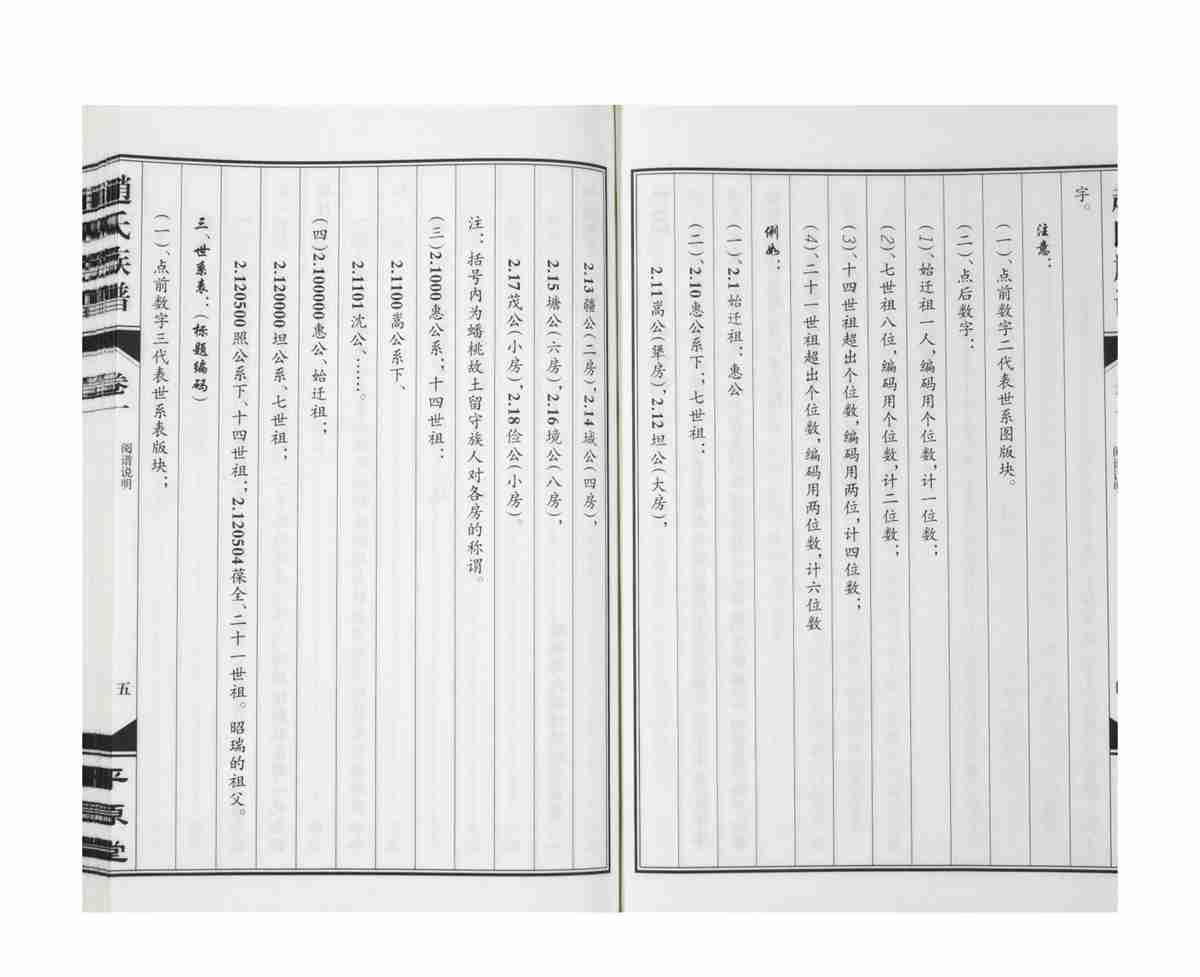 字。
注意：
（一）、点前数字二代表世系图版块。
（二）、点后数字：
（1）、始迁祖一人，编码用个位数，计一位数；
（2）、七世祖八位，编码用个位数，计二位数；
（3）、十四世祖超出个位数，编码用两位，计四位数；
（4）、二十一世祖超出个位数，编码用两位数，计六位数
例如：
（一）、2.1始迁祖：惠公
（二）、2.10惠公系下：，七世祖：
2.11嵩公（犟房），2.12坦公（大房），
2.13疆公（二房），2.14域公（四房），
2.15塘公（六房），2.16境公（八房），
2.17茂公（小房），2.18俭公（小房）。
注：括号内为蟠桃故土留守族人对各房的称谓。
（三）2.1000惠公系；，十四世祖：
2.1100嵩公系下、
2.1101沈公、……。
（四）2.100000惠公、始迁祖；，
2.120000坦公系、七世祖；，
2.120500照公系下、十四世祖；，2.120504葆全、二十一世祖。昭瑞的祖父。
三、世系表：（标题编码）
（一）、点前数字三代表世系表版块；
赵氏族谱
卷一
阅谱说明
五
平原堂